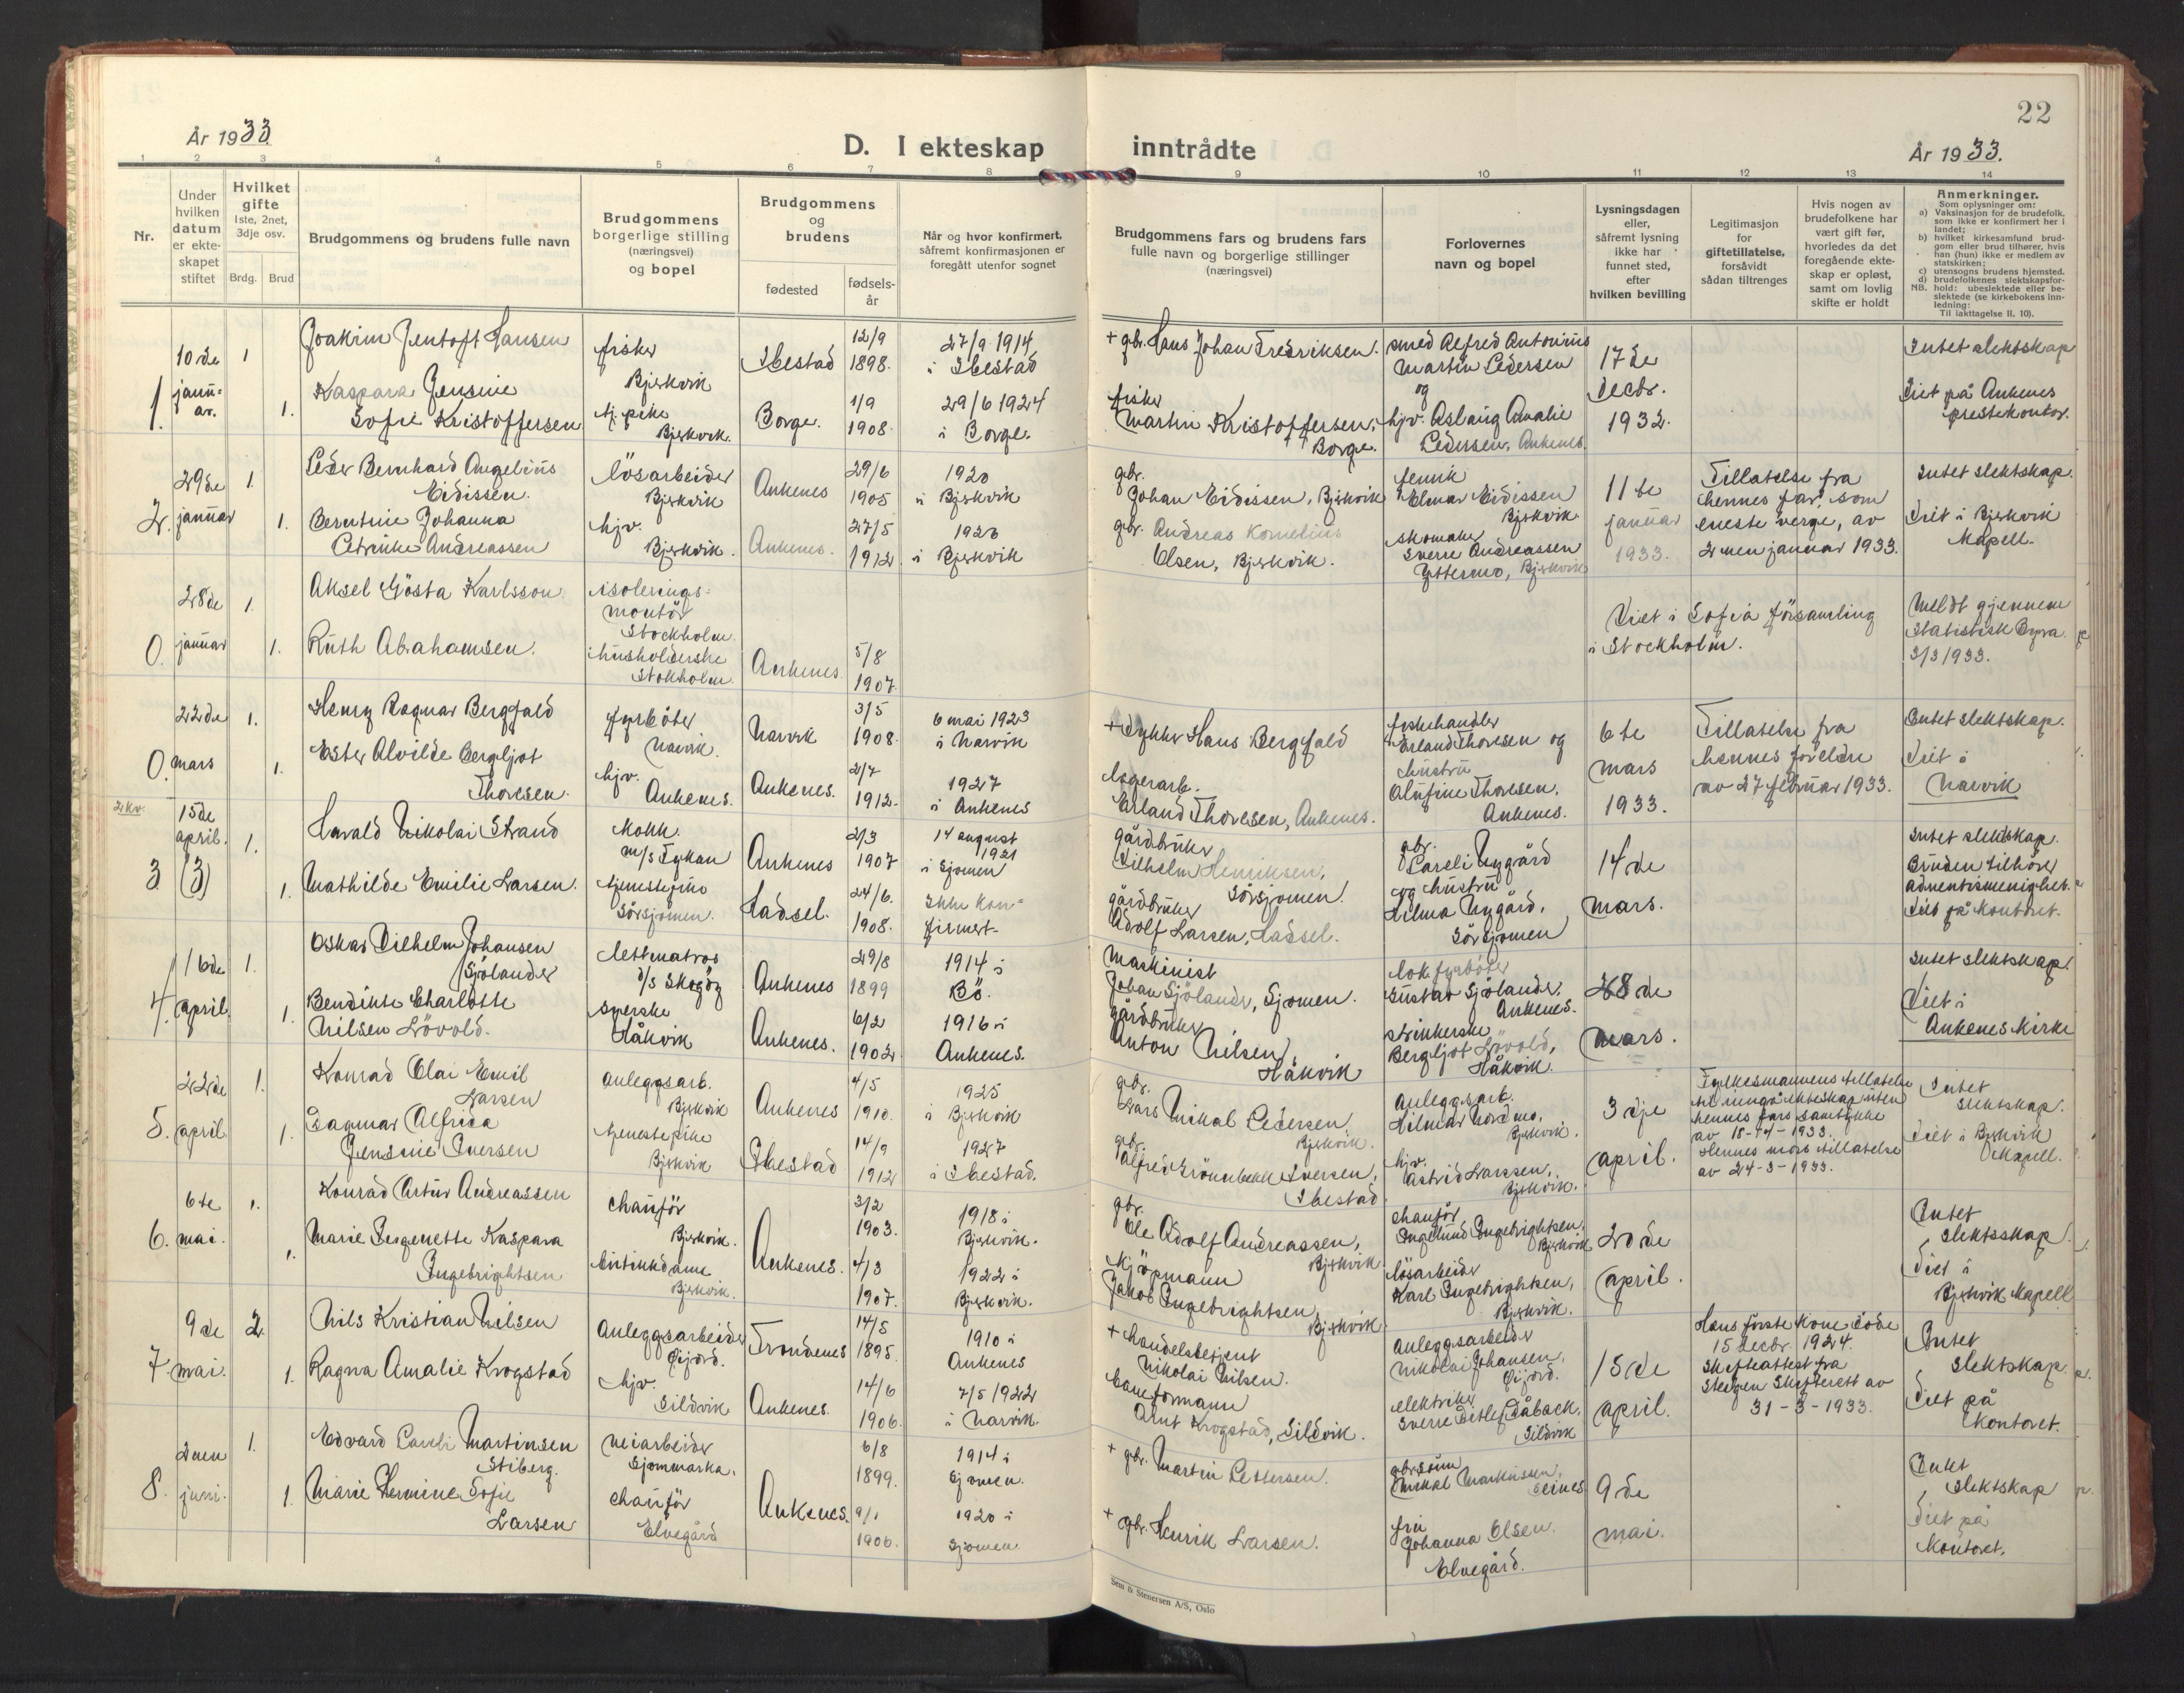 22
År 1933.
D. I ekteskap inntrådte
År 1933.
1 2 3 4 5 6 7 8 9 10 11 12 13 14
Nr.
Under hvilken datum er ekteskapet stiftet
Hvilket gifte
1ste, 2net, 3dje osv.
Brdg. Brud
Brudgommens og brudens fulle navn
Brudgommens borgerlige stilling (næringsvei) og bopel
Brudgommens og brudens
fødested
fødselsår
Når og hvor konfirmert, såfremt konfirmasjonen er foregått utenfor sognet
Brudgommens fars og brudens fars fulle navn og borgerlige stillinger (næringsvei)
Forlovernes navn og bopel
Lysningsdagen eller, såfremt lysning ikke har funnet sted, efter hvilken bevilling
Legitimasjon for giftetillatelse, forsåvidt sådan tiltrenges
Hvis nogen av brudefolkene har vært gift før, hvorledes da det foregående ekteskap er opløst, samt om lovlig skifte er holdt
Anmerkninger.
Som oplysninger om:
a) Vaksinasjon for de brudefolk, som ikke er konfirmert her i landet;
b) hvilket kirkesamfund brudgom eller brud tilhører, hvis han (hun) ikke er medlem av statskirken;
c) utensogns brudens hjemsted.
d) brudefolkenes slektskapsforhold: ubeslektede eller beslektede (se kirkebokens innledning:
NB.
Til iakttagelse II. 10).
1. 10de januar.
1
Joakim Jentoft Hansen
fisker
Bjerkvik
Ibestad
12/9 1898.
27/9 1914 i Ibestad
+ gbr. Hans Johan Fredriksen.
smed Alfred Antonius Martin Pedersen og
17de decbr. 1932.
Intet slektskap
1.
Kaspara Jensine Sofie Kristoffersen
tj. pike
Bjerkvik.
Borge.
1/9 1908.
29/6 1924 i Borge.
fisker Martin Kristoffersen, Borge.
hjv. Aslaug Amalie Pedersen, Ankenes.
Viet på Ankenes prestekontor.
2. 29de januar
1.
Peder Bernhard Angelius Eidissen.
løsarbeider
Bjerkvik
Ankenes
29/6 1905
1920 i Bjerkvik
gbr. Johan Eidissen, Bjerkvik
fenrik Elmar Eidissen Bjerkvik.
11te januar 1933.
Tillatelse fra hennes far, som eneste verge, av 2nen januar 1933.
Intet slektskap.
1.
Berntine Johanna Petrikke Andreassen
hjv.
Bjerkvik.
Ankenes.
27/5 1912
1926 i Bjerkvik
gbr. Andreas Kornelius Olsen, Bjerkvik.
skomaker Sverre Andreassen Yttermo, Bjerkvik
Viet i Bjerkvik Kapell.
0. 28de januar
1.
Aksel Gösta Karlsson
isolerings-montør
Stockholm.
Viet i Sofia församling i Stockholm.
Meldt gjennem Statistisk Byrå. 3/3 1933.
1.
Ruth Abrahamsen.
husholderske
Stokholm.
Ankenes
5/8 1907
0. 22de mars
1.
Henry Ragnar Bergfald
fyrbøter
Narvik.
Narvik
3/5 1908.
6 mai 1923 i Narvik
+ Dykker Hans Bergfald
fiskehandler Erland Thoresen og hustru Olufine Thoresen, Ankenes.
6te mars 1933.
Tillatelse fra hennes foreldre av 27 februar 1933.
Intet slektskap.
Viet i Narvik
1.
Ester Alvilde Bergljot Thoresen.
hjv.
Ankenes.
Ankenes.
2/7 1912.
1927 i Ankenes
lagerarb. Erland Thoresen, Ankenes.
2 kv.
3. 15de april. (3)
1.
Harald Nikolai Strand
Kokk.
m/s Fykan
Ankenes
2/3 1907
14 august 1921 i Sjomen
gårdbruker Vilhelm Henriksen, Sörsjomen.
gbr. Pareli Nygård og hustru Hilma Nygård, Sörsjomen
14de mars.
Intet slektskap.
Bruden tilhører adventismenighet.
Viet på kontoret.
1.
Mathilde Emilie Larsen.
tjenestejino
Sörsjomen.
Hadsel.
24/6. 1908.
Ikke konfirmert.
gårdbruker Adolf Larsen, Hadsel.
4. 16de april.
1.
Oskar Vilhelm Johansen Sjölander
lettmatros
d/s Skogøy
Ankenes
29/8 1899
1914 i Bö.
Maskinist Johan Sjölander, Sjomen.
lok. fyrbøter Gustav Sjölander, Ankenes.
28de mars.
Intet slektskap.
1.
Bendikte Charlotte Nilsen Lövold.
syerske
Håkvik
Ankenes.
6/2 1902
1916 i Ankenes.
gårdbruker Anton Nilsen, Håkvik
strikkerske Bergljot Lövold, Håkvik.
Viet i Ankenes Kirke
5. 22de april
1.
Konrad Olai Emil Larsen
anleggsarb.
Bjerkvik
Ankenes
4/5 1910.
1925 i Bjerkvik
gbr. Lars Mikal Pedersen, Bjerkvik.
anleggsarb. Hilmar Nordmo, Bjerkvik.
3dje april.
Fylkesmannens tillatelse til inngå ekteskap uten hennes fars samtykke av 18-4-1933.
Hennes mors tillatelse av 24-3-1933.
Intet slektskap.
1.
Dagmar Alfrida Jensine Iversen
tjenestepike
Bjerkvik
Ibestad
14/9 1912
1927 i Ibestad.
gbr. Alfred Grönnbekk Iversen, Ibestad
hjv. Astrid Larssen, Bjerkvik.
Viet i Bjerkvik Kapell.
6. 6te mai.
1.
Konrad Artur Andreassen
chauför
Bjerkvik.
Ankenes.
3/2 1903.
1918 i Bjerkvik.
gbr. Ole Adolf Andreassen, Bjerkvik
chauför Ingelund Ingebrigtsen, Bjerkvik
20de april.
Intet slektsskap.
1.
Marie Jergenette Kaspara Ingebrigtsen
butikkdame
Bjerkvik.
4/3 1907.
1922 i Bjerkvik.
kjøpmann Jakob Ingebrigtsen, Bjerkvik
løsarbeider Karl Ingebrigtsen, Bjerkvik.
Viet i Bjerkvik Kapell
7. 9de mai.
2.
Nils Kristian Nilsen
Anleggsarbeider
Öijord.
Trondenes
14/5 1895.
1910 i Ankenes
+ handelsbetjent Nikolai Nilsen.
anleggsarbeider Nikolai Johansen, Öijord.
15de april.
Hans første kone døde 15 decbr. 1924.
Skifteattest fra Steigen Skifterett av 31-3-1933.
Intet slektskap.
1.
Ragna Amalie Krogstad
hjv.
Sildvik
Ankenes.
14/6 1906.
7/5 1922 i Narvik.
baneformann Arnt Krogstad, Sildvik.
elektriker Sverre Detlef Dåback, Sildvik
Viet på Kontoret.
8. 2nen juni.
1.
Edvard Pareli Martinsen Stiberg.
veiarbeider
Sjommarka.
Ankenes.
6/8 1899.
1914 i Sjomen.
+ gbr. Martin Pettersen.
gbrsønn Mikal Martinsen, Seines
9de mai.
Intet slektskap
1.
Marie Hermine Sofie Larsen
chauför
Elvegård
9/1 1906.
1920 i Sjomen
+ gbr. Henrik Larsen.
fru Johanna Olsen. Elvegård.
Viet på Kontoret.
Sem & Stenersen A/S, Oslo